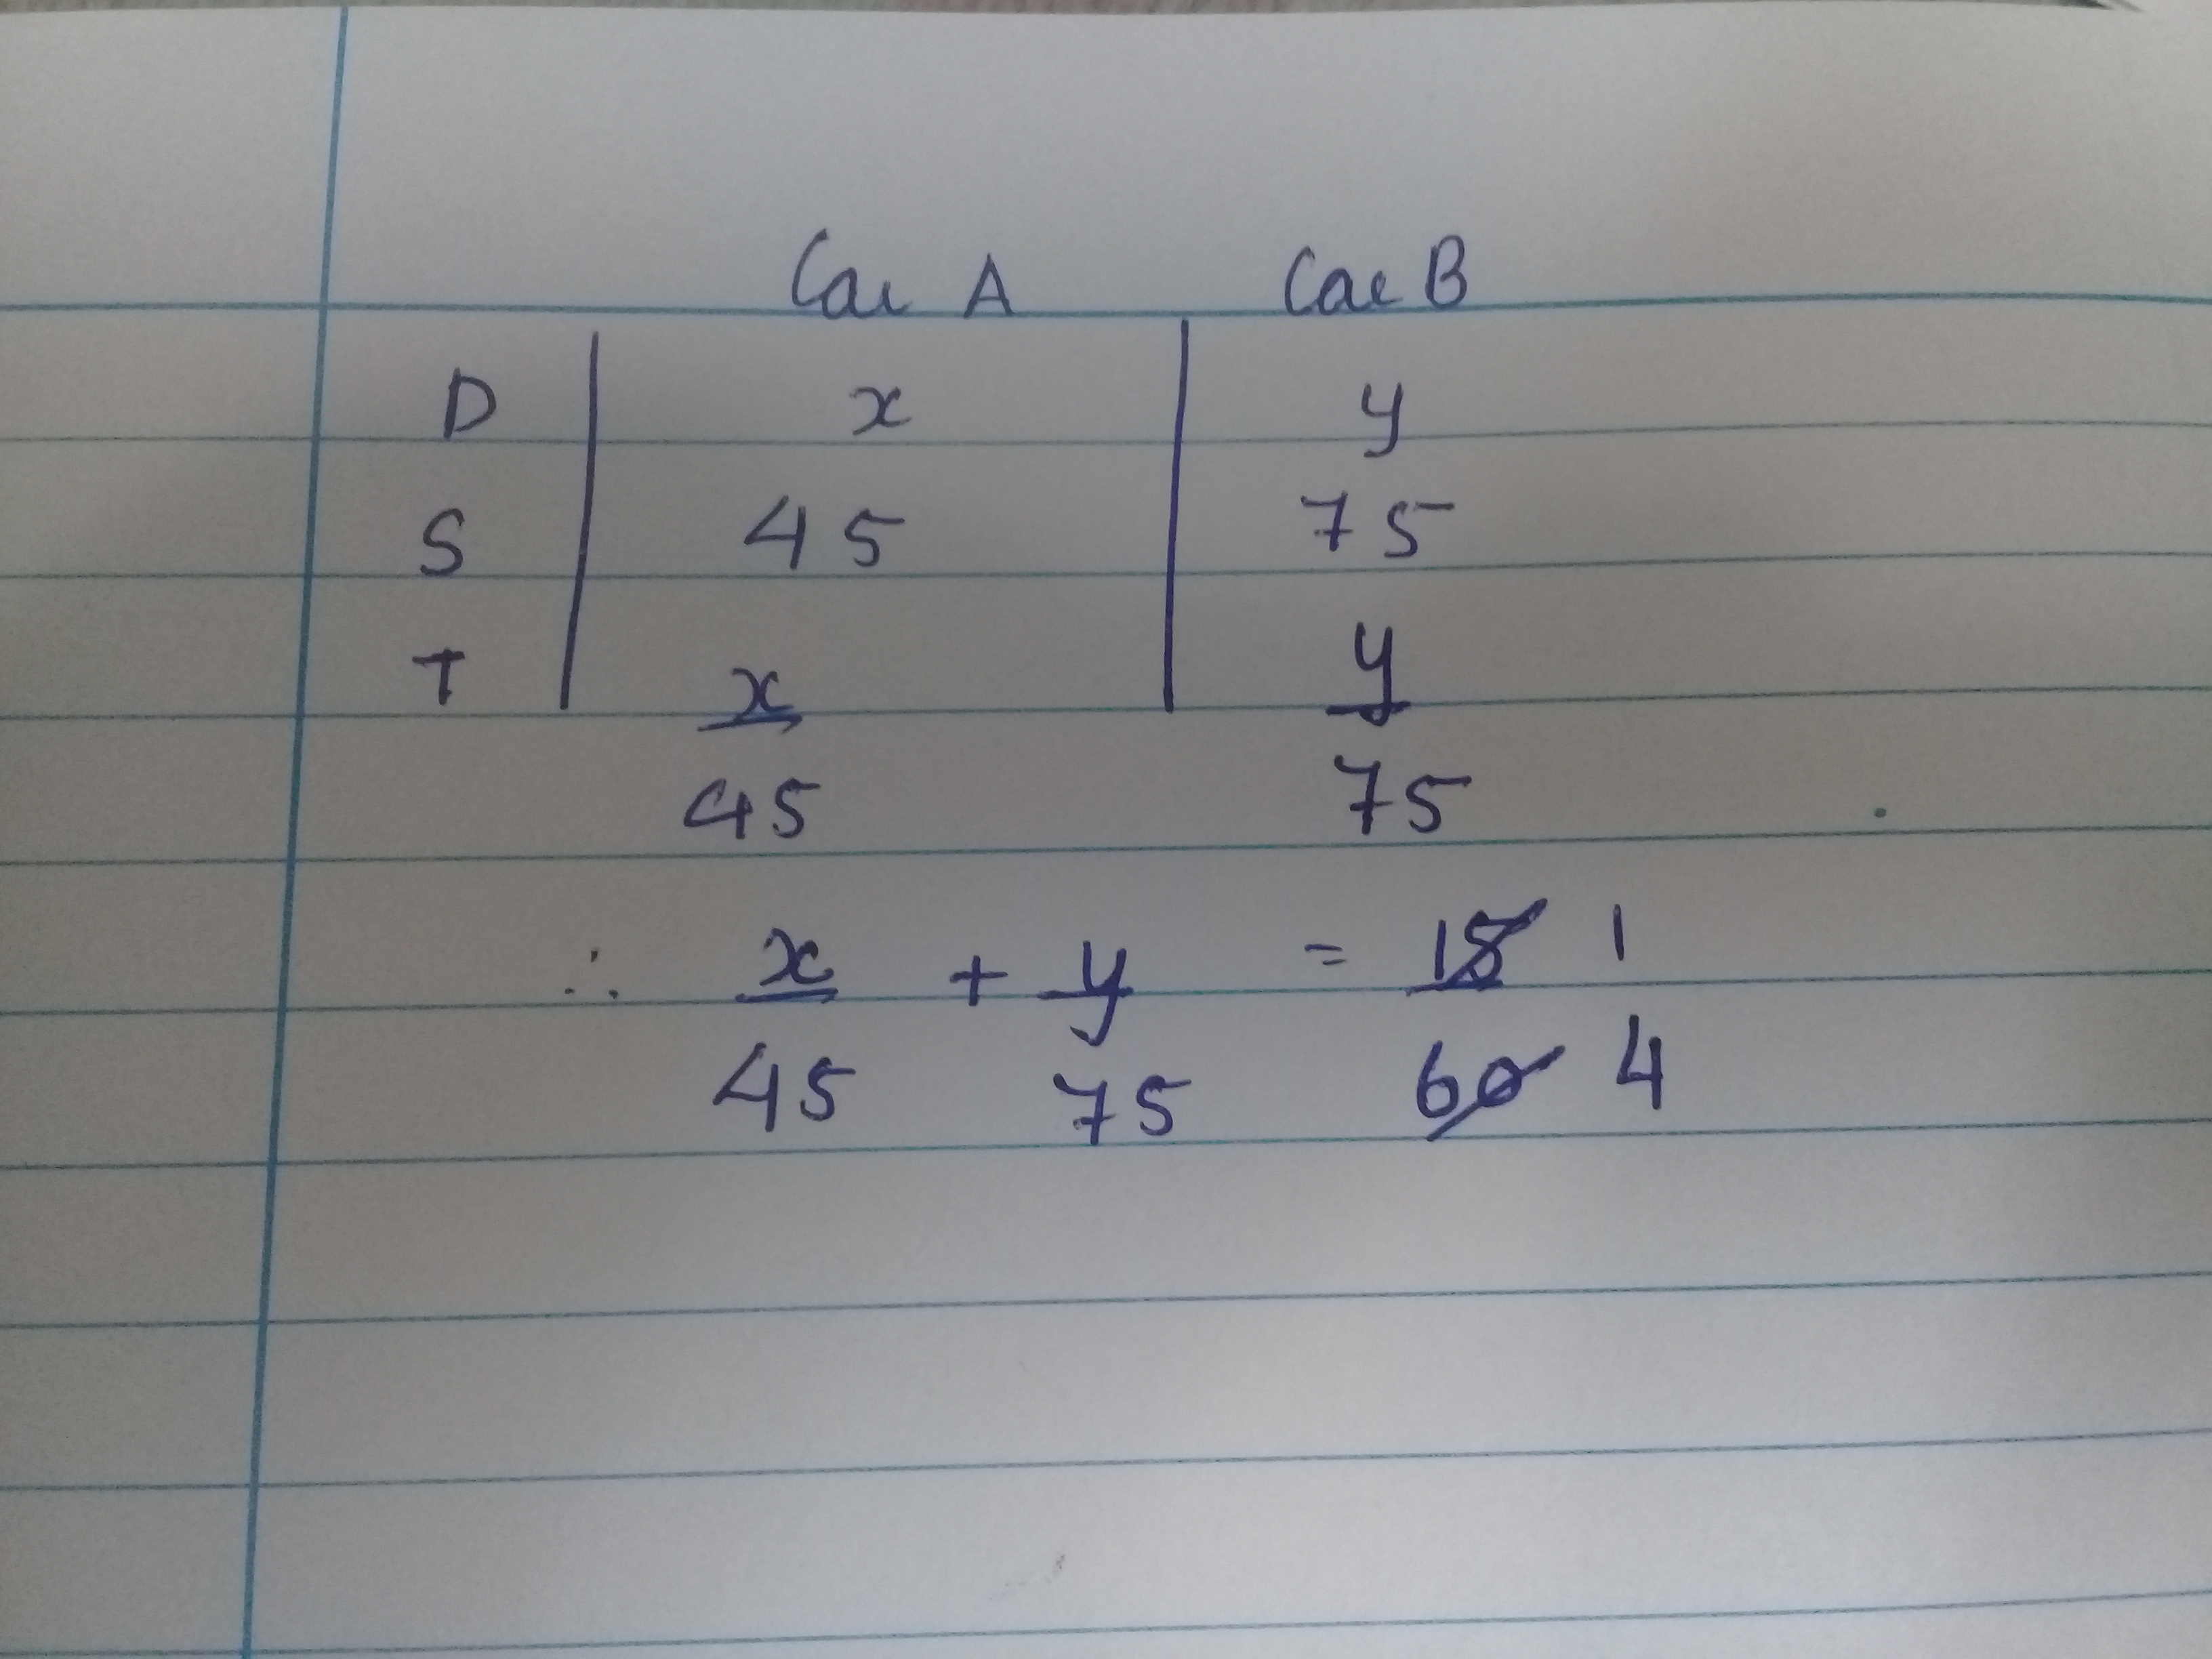 Car A Car B
D x y
S 45 75
T x/45 y/75
∴ x/45 + y/75 = 15/60 1/4